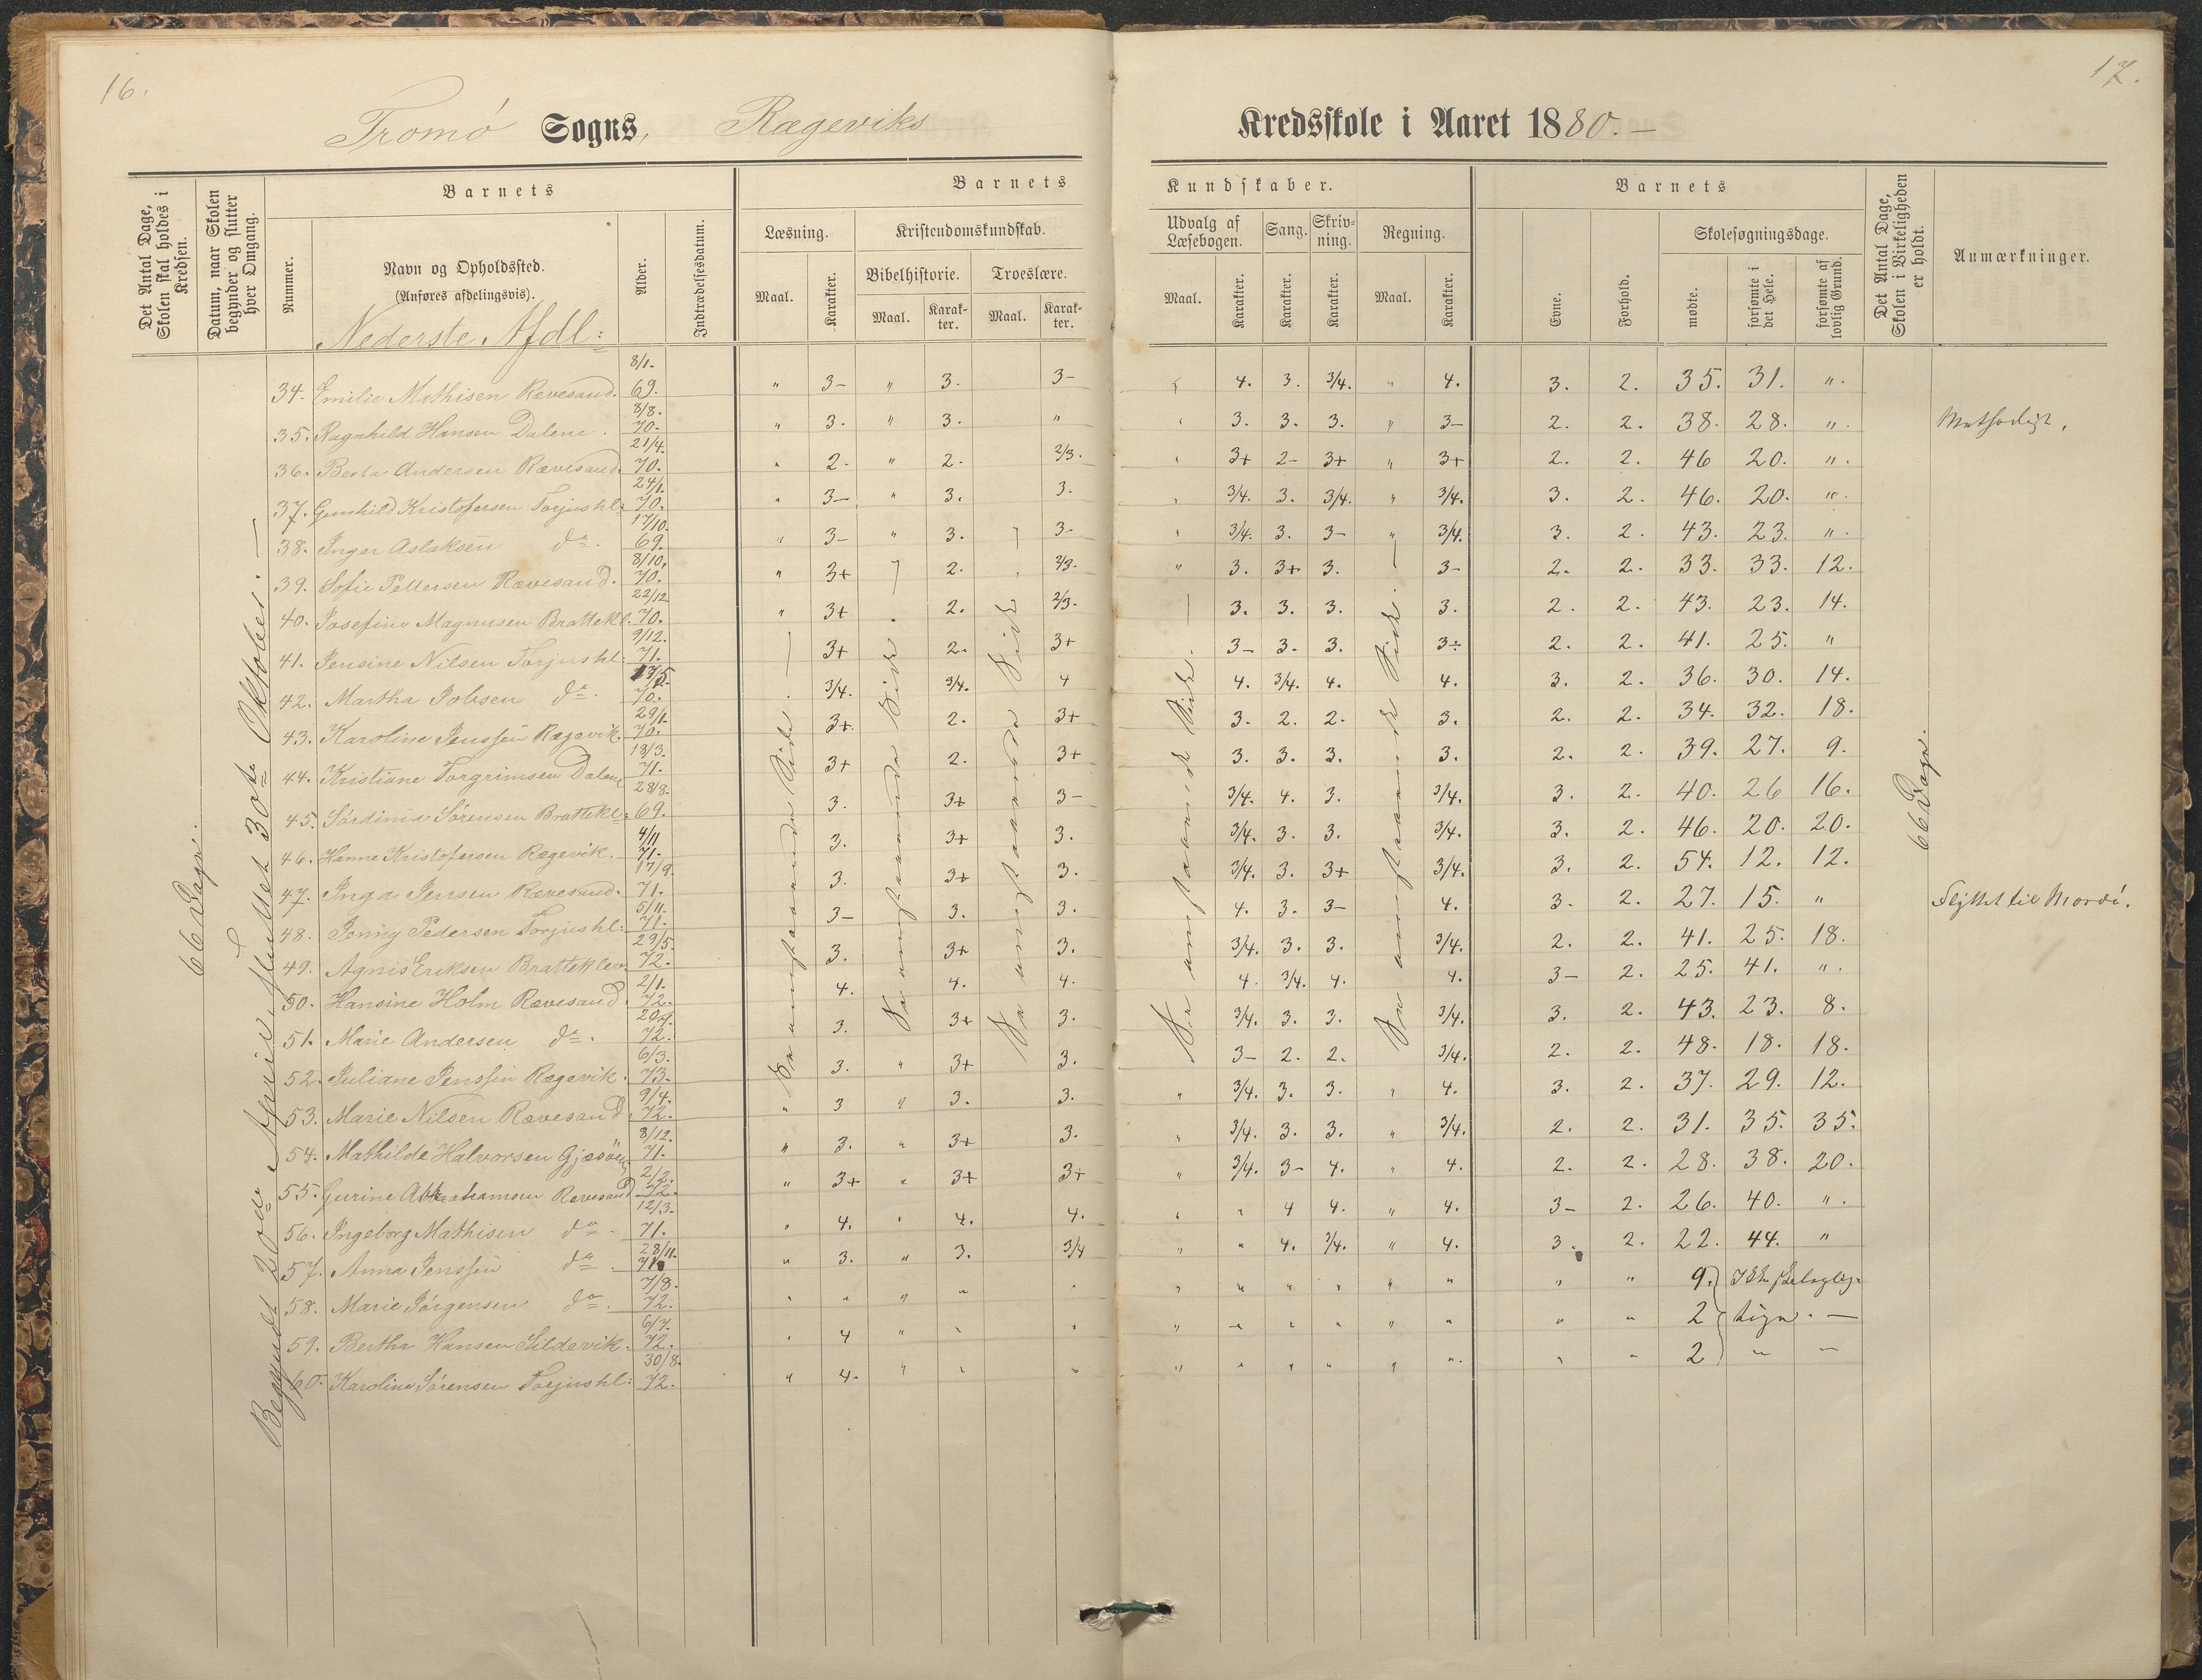 16.
Tromö Sogns, Rægeviks
Kredsskole i Aaret 1880. –
17.
Det Antal Dage, Skolen skal holdes i Kredsen.
Datum, naar Skolen begynder og slutter hver Omgang.
Barnets
Nummer.
Navn og Opholdssted.
(Anføres afdelingsvis).
Alder.
Indtrædelsesdatum.
Barnets
Kundskaber.
Læsning.
Maal.
Karakter.
Kristendomskundskab.
Bibelhistorie.
Maal.
Karakter.
Troeslære.
Maal.
Karakter.
Udvalg af Læsebogen.
Maal.
Karakter.
Sang.
Karakter.
Skrivning.
Karakter.
Regning.
Maal.
Karakter.
Barnets
Evne.
Forhold.
Skolesøgningsdage.
mødte.
forsømte i det Hele.
forsømte af lovlig Grund.
Det Antal Dage, Skolen i Virkeligheden er holdt.
Anmærkninger.
Nederste Afdl:
66 Dage.
Begyndt 20de April, sluttet 30te Oktober. —
66 Dage.
34. Emilie Mathisen Rævesand. 8/1. 69. " 3– " 3. 3– 4. 3. 3/4. " 4. 3. 2. 35. 31. ".
35. Ragnhild Hansen Dalene. 8/8. 70. " 3. " 3. " 3. 3. 3. " 3– 2. 2. 38. 28. ".
36. Berta Andersen Rævesand. 21/4. 70. " 2. " 2. 2/3. 3+ 2– 3+ " 3+ 2. 2. 46 20. ".
37. Gunhild Kristofersen Torjushl: 24/1. 70. " 3– " 3. 3. " 3/4. 3. 3/4. " 3/4. 3. 2. 46. 20. ".
38. Inger Aslaksen do. 17/10. 69. " 3– " 3. 3– " 3/4. 3. 3– " 3/4. 3. 2. 43. 23. ".
39. Sofie Pettersen Rævesand. 8/10. 70. " 3+ 2. 2/3. " 3. 3+ 3. 3– 2. 2. 33. 33. 12.
40. Josefine Magnusen Brattekl. 22/12 70. " 3+ 2. 2/3. 3. 3. 3. 3. 2. 2. 43. 23. 14.
41. Jensine Nilsen Torjushl: 9/12. 71. 3+ 2. 3+ 3– 3. 3. 3÷ 2. 2. 41. 25. "
42. Martha Jobsen do. 17/5. 70. 3/4. 3/4. 4 4. 3/4. 4. 4. 3. 2. 36. 30. 14.
43. Karoline Jenssen Rægevik. 29/1. 70. 3+ 2. 3+ 3. 2. 2. 3. 2. 2. 34. 32. 18.
44. Kristiane Torgrimsen Dalene 18/3. 71. 3+ 2. 3+ 3. 3. 3. 3. 2. 2. 39. 27. 9.
45. Sørdinia Sørensen Brattekl: 28/8. 69. 3. 3+ 3– 3/4. 4. 3. 3/4. 3. 2. 40. 26 16.
46. Hanne Kristofersen Rægevik. 4/11 71. 3. 3+ 3. 3/4. 3. 3. 3/4. 3. 2. 46. 20. 20.
47. Inga Jensen Rævesand. 17/9. 71. 3. 3+ 3. 3/4. 3. 3+ 3/4. 3. 2. 54. 12. 12.
48. Jenny Pedersen Torjushl: 5/11. 71. 3– 3. 3. 4. 3. 3– 4. 3. 2. 27. 15. " Flyttet til Mordö.
49. Agnis Eriksen Bratteklev. 29/5. 72. 3. 3+ 3. 3/4. 3. 3. 3/4. 2. 2. 41. 25. 18.
50. Hansine Holm Rævesand. 2/1. 72. 4. 4. 4. 4. 3/4. 4. 4. 3– 2. 25. 41. ".
51. Marie Andersen do. 72. 3. 3+ 3. 3/4. 3. 3. 3/4. 3. 2. 43. 23. 8.
52. Juliane Jenssen Rægevik. 6/3. 73. 3. " 3+ 3. 3– 2. 2. 3/4. 2. 2. 48. 18. 18.
53. Marie Nilsen Rævesand. 9/4. 72. " 3 " 3. 3. " 3/4. 3. 3. " 4. 3. 2. 37. 29. 12.
54. Mathilde Halvorsen Gjæsöen 8/12. 71. " 3. " 3+ 3. " 3/4. 3. 3. " 3/4. 2. 2. 31. 35. 35.
55. Gurine Abrahamsen Rævesand 2/2. 72. " 3+ " 3+ 3+ " 3/4. 3– 4. " 4. 2. 2. 28. 38. 20.
56. Ingeborg Mathisen do. 12/3. 71. " 4. " 4. 4. " " 4 4. " 4. 3– 2. 26. 40. ".
57. Anna Jenssen do. 28/11. 71. " 3. " 3. 3/4 " " 4. 3/4. " 4. 3. 2. 22. 44. "
58. Marie Jörgensen do. 7/8. 72. " " " " " " " " " " " " " 9.
59. Bertha Hansen Sildevik. 6/7. 72. " 4 " " " " " " " " " " " 2
60. Karoline Sörensen Torjushl: 30/8. 72. " 4. " " " " " " " " " " " 2 " –